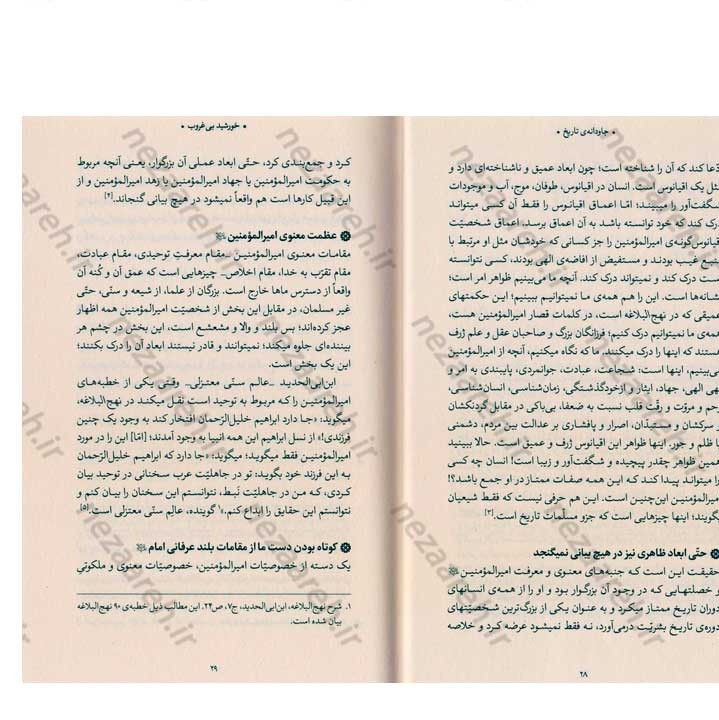 • جاودانه‌ی تاریخ •
دّعا کند که آن را شناخته است؛ چون ابعاد عمیق و ناشناخته‌ای دارد و
مثل یک اقیانوس است. انسان در اقیانوس، طوفان، موج، آب و موجودات
شگفت‌آور را میبیند؛ امّا اعماق اقیانوس را فقط آن کسی میتواند
درک کند که خود توانسته باشد به آن اعماق برسد. اعماق شخصیّت
قیانوس‌گونه‌ی امیرالمؤمنین را جز کسانی که خودشان مثل او مرتبط با
منبع غیب بودند و مستفیض از افاضه‌ی الهی بودند، کسی نتوانسته
ست درک کند و نمیتواند درک کند. آنچه ما می‌بینیم ظواهر امر است؛
نشانه‌ها است. این را هم همه‌ی ما نمیتوانیم ببینیم؛ این حکمتهای
عمیقی که در نهج‌البلاغه است، در کلمات قصار امیرالمؤمنین هست،
همه‌ی ما نمیتوانیم درک کنیم؛ فرزانگان بزرگ و صاحبان عقل و علم ژرف
هستند که اینها را درک میکنند. ما که نگاه میکنیم، آنچه از امیرالمؤمنین
می‌بینیم، اینها است: شجاعت، عبادت، جوانمردی، پایبندی به امر و
نهی الهی، جهاد، ایثار و ازخودگذشتگی، زمان‌شناسی، انسان‌شناسی،
رحم و مروّت و رقّت قلب نسبت به ضعفا، بی‌باکی در مقابل گردنکشان
و سرکشان و مستبدّان، اصرار و پافشاری بر عدالت بین مردم، دشمنی
با ظلم و جور. اینها ظواهر این اقیانوس ژرف و عمیق است. حالا ببینید
همین ظواهر چقدر پیچیده و شگفت‌آور و زیبا است! انسان چه کسی
را میتواند پیدا کند که این همه صفات ممتاز در او جمع باشد؟!
امیرالمؤمنین این‌چنین است. این هم حرفی نیست که فقط شیعیان
بگویند؛ اینها چیزهایی است که جزو مسلّمات تاریخ است.[۳]
حتّی ابعاد ظاهری نیز در هیچ بیانی نمیگنجد
حقیقت این است که جنبه‌های معنوی و معرفت امیرالمؤمنین
و خصلتهایی که در وجود آن بزرگوار بود و او را از همه‌ی انسانهای
دوران تاریخ ممتاز میکرد و به عنوان یکی از بزرگ‌ترین شخصیّتهای
دوره‌ی تاریخ بشریّت درمی‌آورد، نه فقط نمیشود عرضه کرد و خلاصه
۲۸
• خورشید بی‌غروب •
کرد و جمع‌بندی کرد، حتّی ابعاد عملی آن بزرگوار، یعنی آنچه مربوط
به حکومت امیرالمؤمنین یا جهاد امیرالمؤمنین یا زهد امیرالمؤمنین و از
این قبیل کارها است هم واقعاً نمیشود در هیچ بیانی گنجاند.[۴]
عظمت معنوی امیرالمؤمنین
مقامات معنوی امیرالمؤمنین _مقام معرفتِ توحیدی، مقام عبادت،
مقام تقرّب به خدا، مقام اخلاص_ چیزهایی است که عمق آن و کُنه آن
واقعاً از دسترس ماها خارج است. بزرگان از علما، از شیعه و سنّی، حتّی
غیر مسلمان، در مقابل این بخش از شخصیّت امیرالمؤمنین همه اظهار
عجز کرده‌اند؛ بس بلند و والا و مشعشع است، این بخش در چشم هر
بیننده‌ای جلوه میکند؛ نمیتوانند و قادر نیستند ابعاد آن را درک بکنند؛
این یک بخش است.
ابن‌ابی‌الحدید _عالم سنّی معتزلی_ وقتی یکی از خطبه‌های
امیرالمؤمنین را که مربوط به توحید است نقل میکند در نهج‌البلاغه،
میگوید: «جا دارد ابراهیم خلیل‌الرّحمان افتخار کند به وجود یک چنین
فرزندی!» از نسل ابراهیم این همه انبیا به وجود آمدند؛ [امّا] این را در مورد
امیرالمؤمنین فقط میگوید؛ میگوید: «جا دارد که ابراهیم خلیل‌الرّحمان
به این فرزند خود بگوید: تو در جاهلیّت عرب سخنانی در توحید بیان
کردی، که من در جاهلیّت نَبط، نتوانستم این سخنان را بیان کنم و
نتوانستم این حقایق را ابداع کنم.»۱ گوینده، عالِم سنّی معتزلی است.[۵]
کوتاه بودن دست ما از مقامات بلند عرفانی امام
یک دسته از خصوصیّات امیرالمؤمنین، خصوصیّات معنوی و ملکوتیِ
۱. شرح نهج‌البلاغه، ابن‌ابی‌الحدید، ج۷، ص۲۴. این مطالب ذیل خطبه‌ی ۹۰ نهج‌البلاغه
بیان شده است.
۲۹
nezaareh.ir